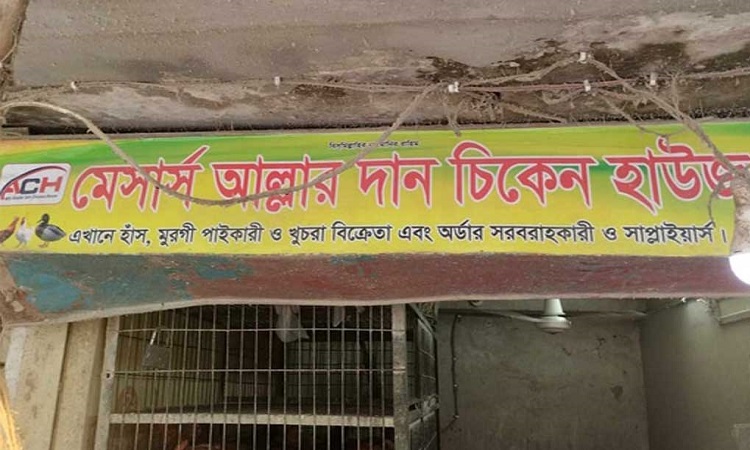 বিসমিল্লাহির রাহমানির রাহিম
ACH
মেসার্স আল্লার দান চিকেন হাউজ
এখানে হাঁস, মুরগী পাইকারী ও খুচরা বিক্রেতা এবং অর্ডার সরবরাহকারী ও সাপ্লাইয়ার্স।